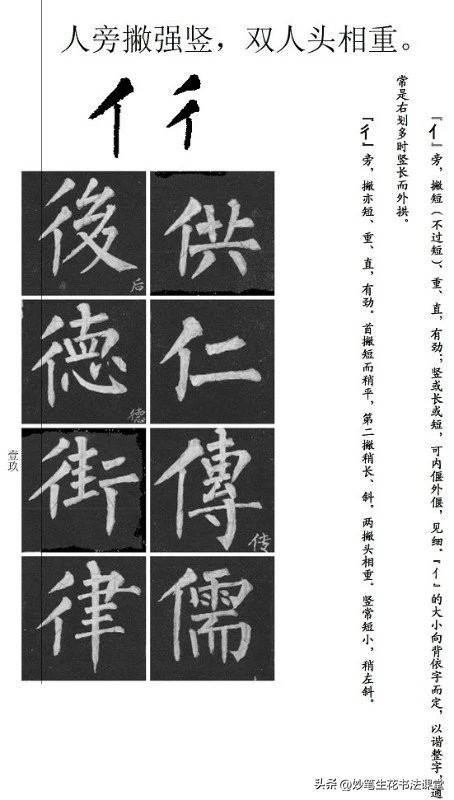 人旁撇强竖，双人头相重。
亻彳
『亻』旁，撇短（不过短）、重、直，有劲；竖或长或短，可内偃外偃，见细。『亻』的大小向背依字而定，以谐整字，通
常是右划多时竖长而外拱。
『彳』旁，撇亦短、重、直，有劲。首撇短而稍平，第二撇稍长、斜。两撇头相重。竖常短小，稍左斜。
供
仁
傳
传
儒
後
后
德
德
街
律
壹玖
头条 @妙笔生花书法课堂